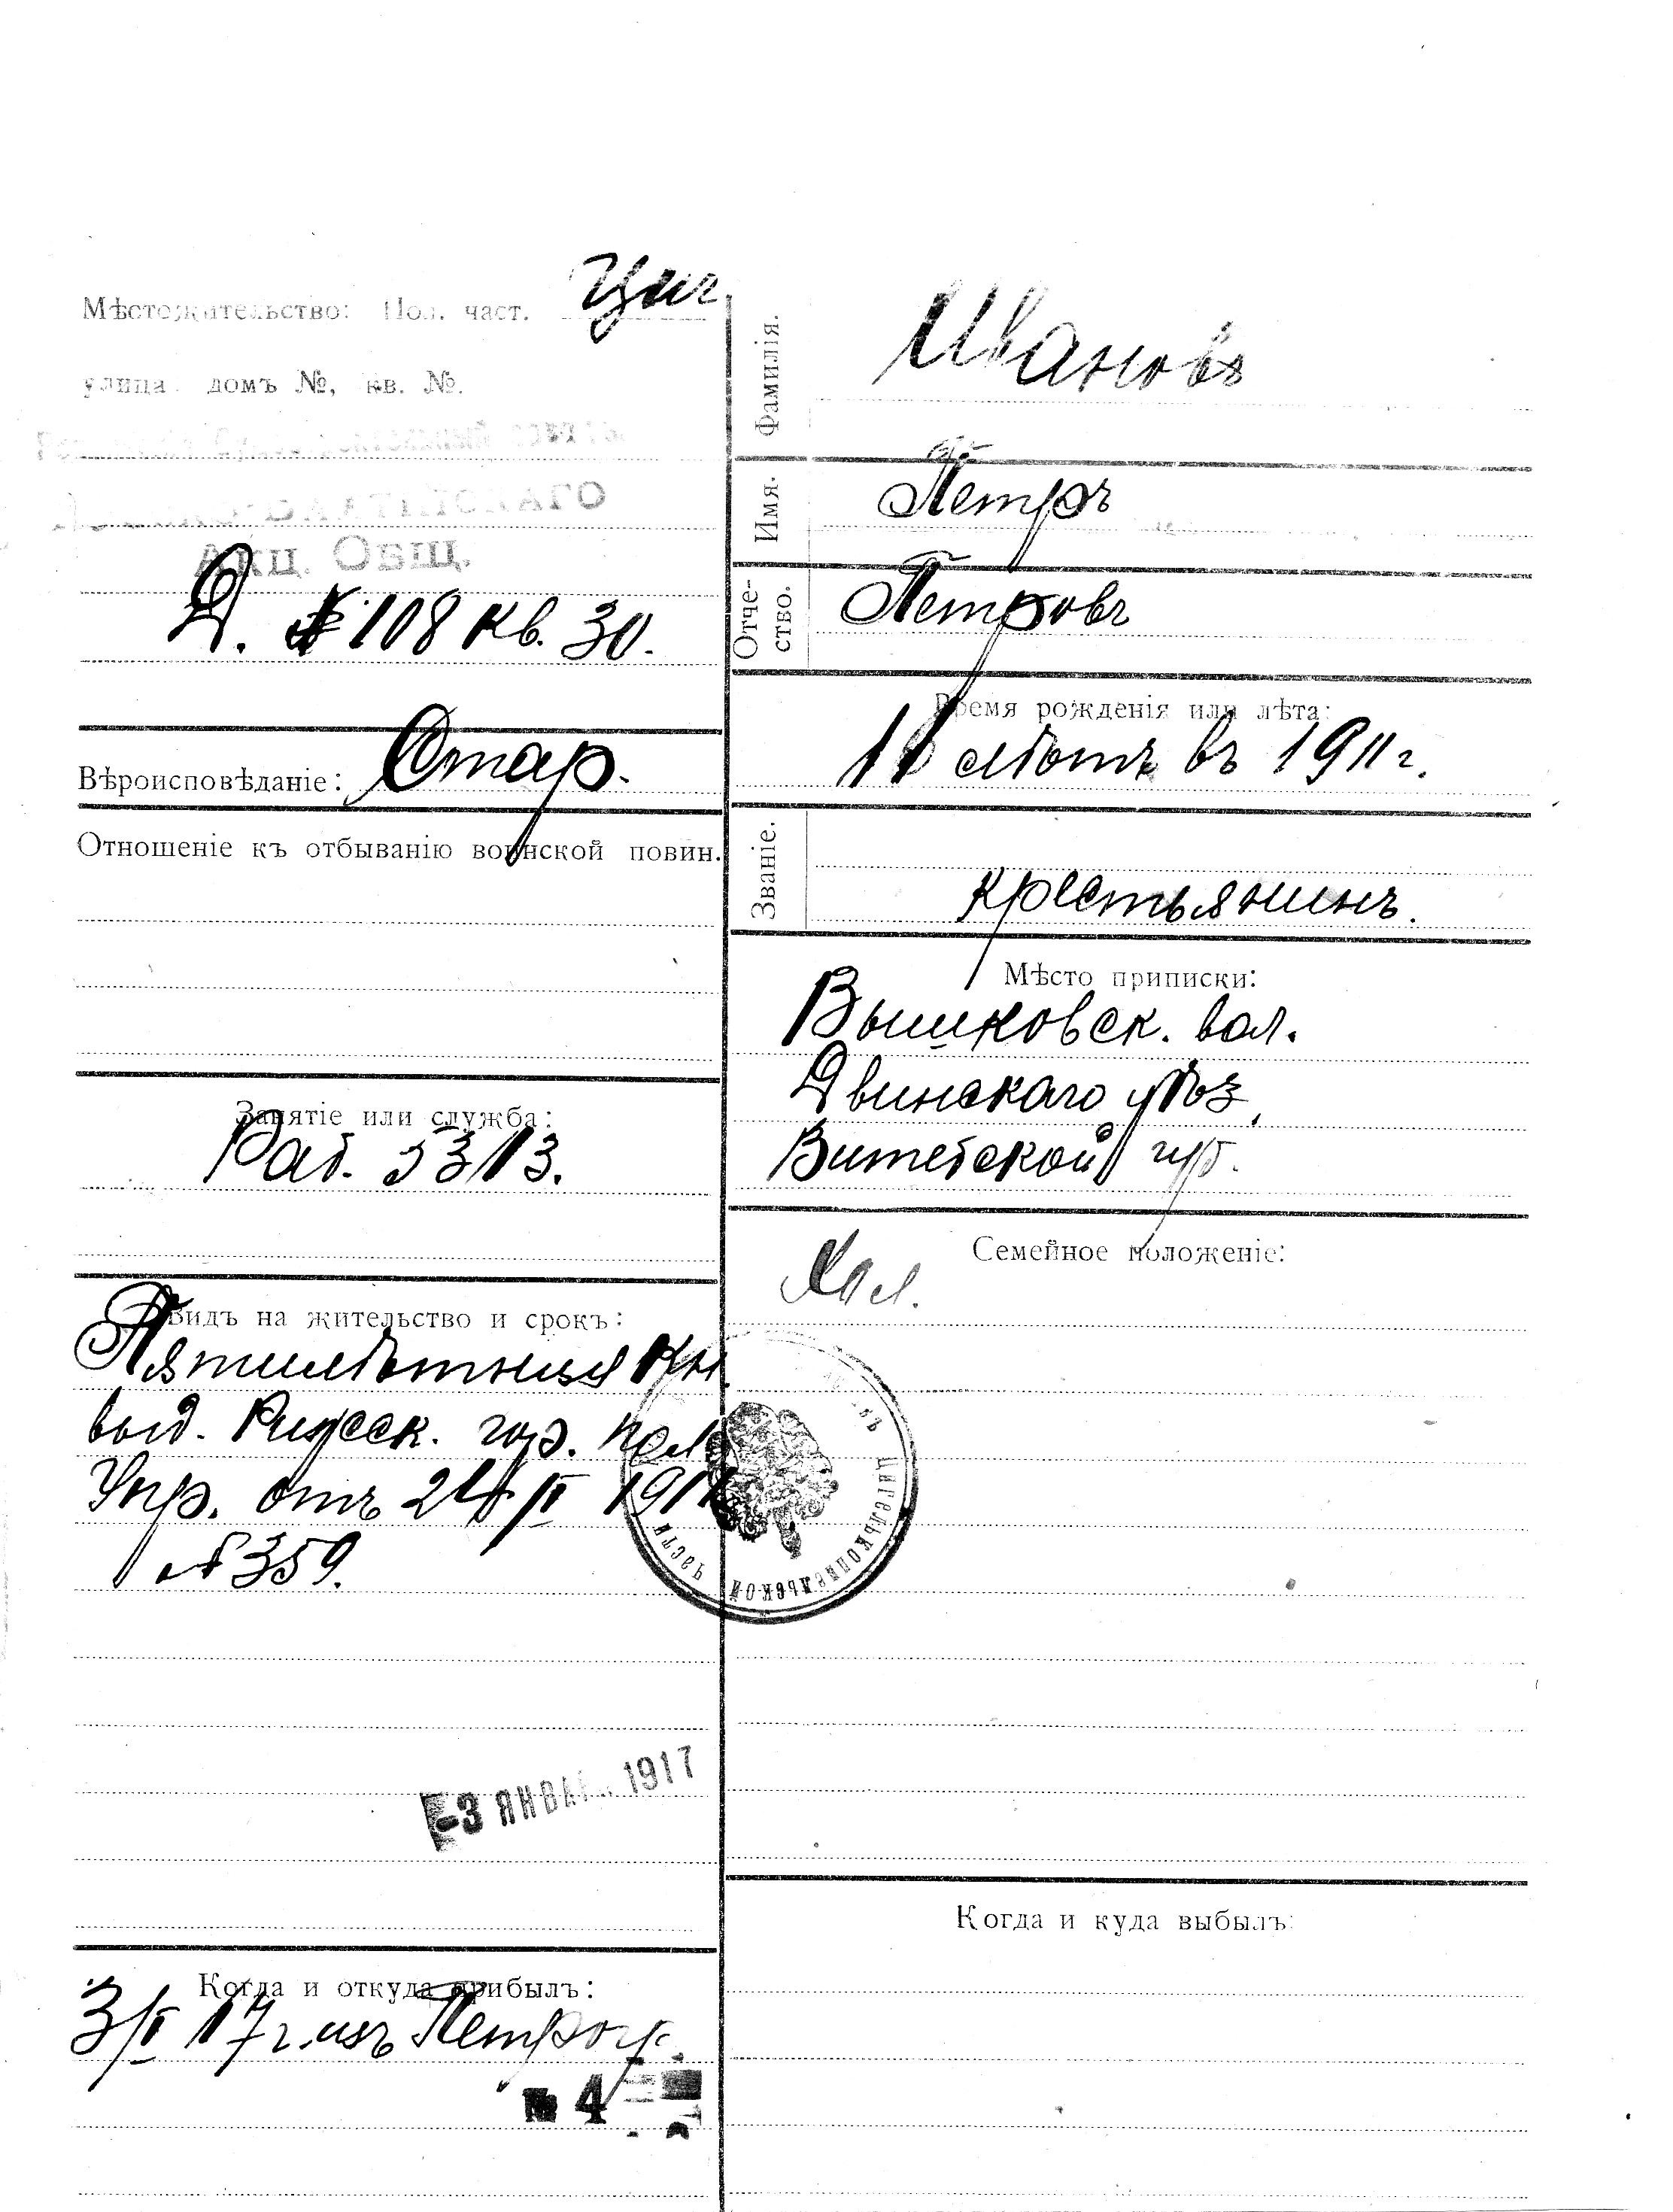 Мѣстожительство: Пол. част. Циг.
улица домъ №, кв. №.
АКЦ. ОБЩ.
Д. № 108 кв. 30.
Вѣроисповѣданіе: Стар.
Отношеніе къ отбыванію воинской повин.
Занятіе или служба:
Раб. 5313.
Видъ на жительство и срокъ:
Пятилѣтняя кн.
выд. Рижск. гор. Пол.
Упр. отъ
№ 359.
-3 ЯНВАР 1917
Когда и откуда прибылъ:
3/I 17 г. изъ Петрогр.
№ 4
Фамилія. Ивановъ
Имя. Петръ
Отче-
ство. Петровъ
Время рожденія или лѣта:
лѣтъ въ 1911 г.
Званіе. крестьянинъ.
Мѣсто приписки:
Вышковск. вол.
Двинскаго уѣз.
Витебской губ.
Семейное положеніе:
Хол.
Цигелькоппельской части
Когда и куда выбылъ: